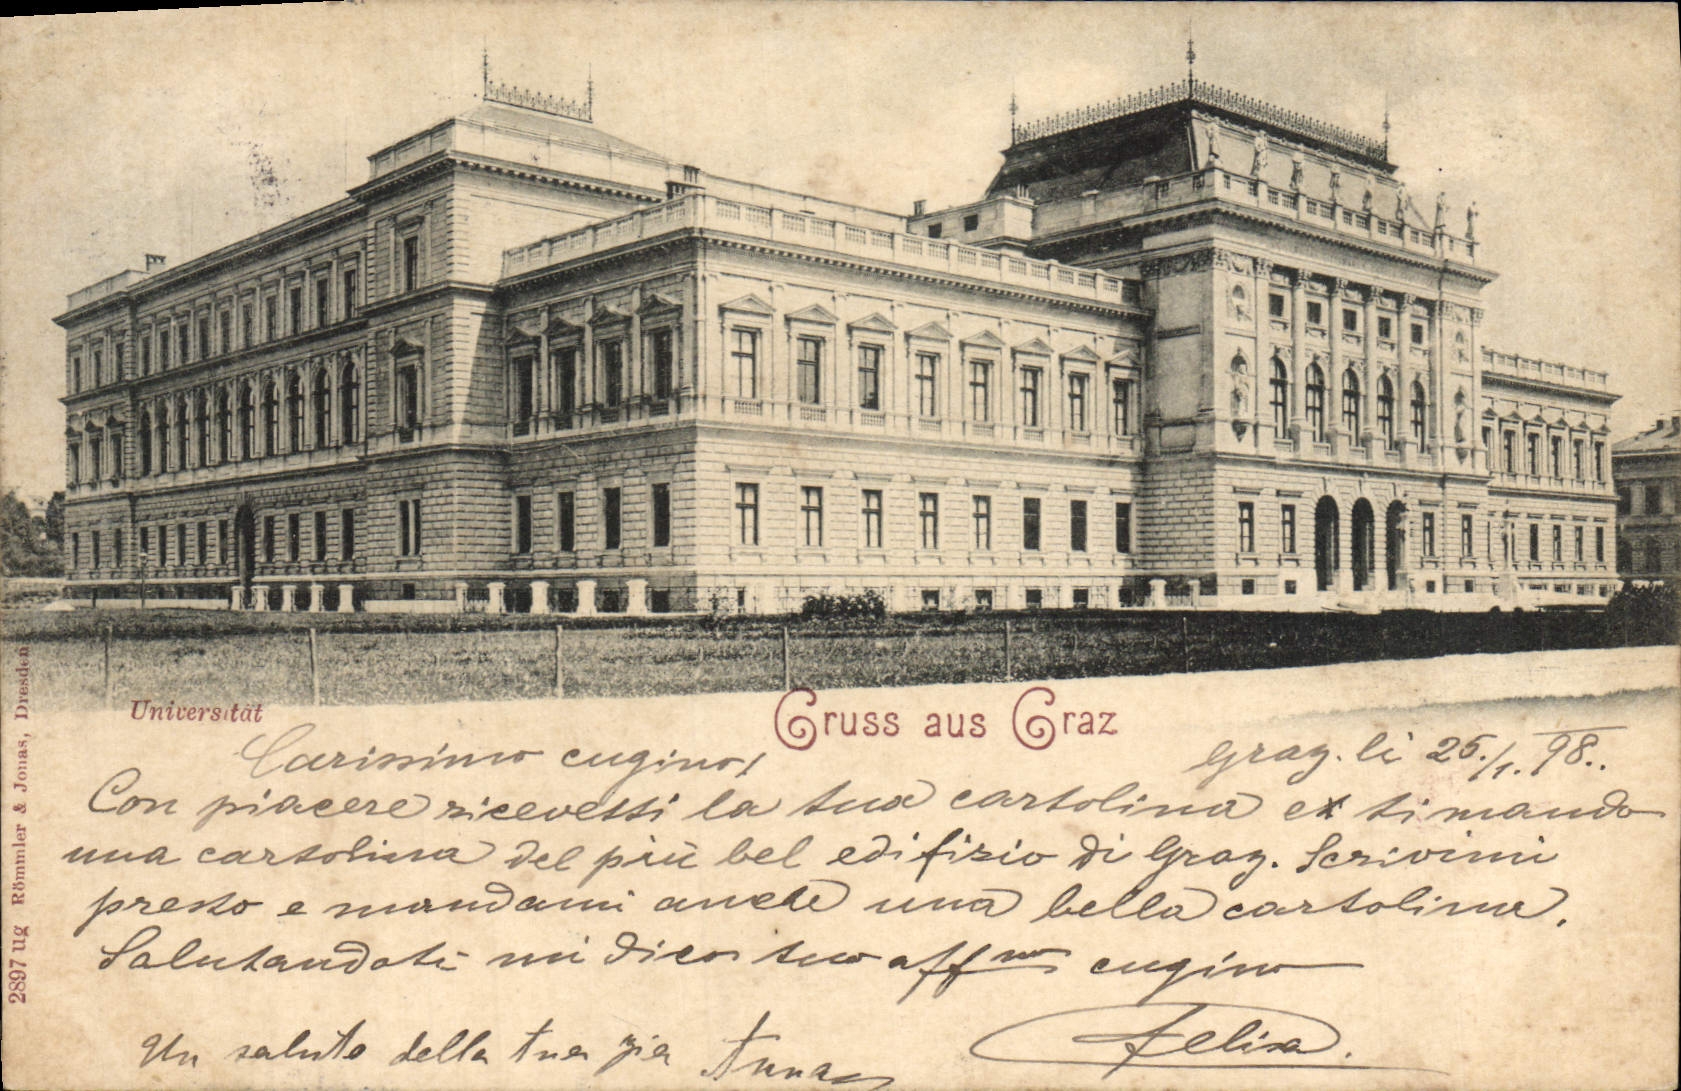 Universität
Gruss aus Graz
Carissimo cugino!
Graz. li 25./1. 98..
Con piacere ricevetti la tua cartolina e ti mando
una cartolina del più bel edifizio di Graz. Scrivimi
presto e mandami anche una bella cartolina.
Salutandoti mi dico tuo affmo cugino
Felix.
Un saluto della tua zia Anna
2897 ug Römmler & Jonas, Dresden